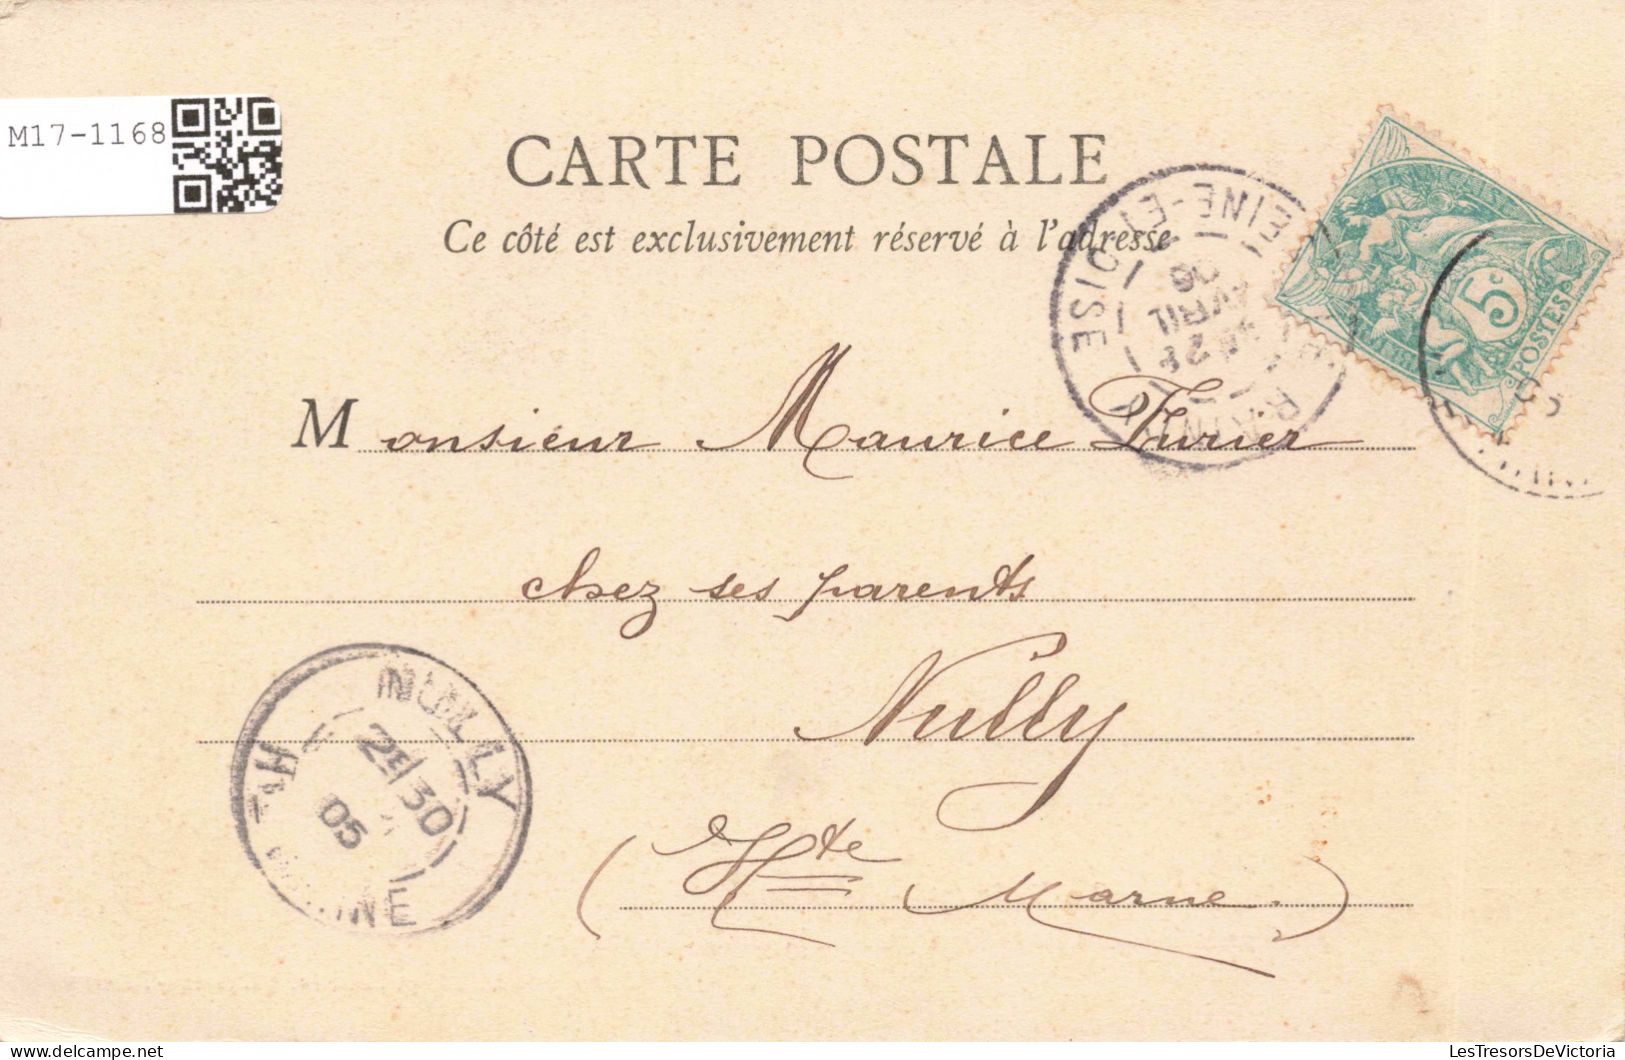 M17-1168
CARTE POSTALE
Ce côté est exclusivement réservé à l'adresse
FRANÇAISE
5c
POSTES
EINE-ET-OISE
AVRIL
Monsieur Maurice Furier
chez ses parents
Nully
(Hte Marne.)
NULLY
2E/30
05
HTE
MARNE
LesTresorsDeVictoria
delcampe.net